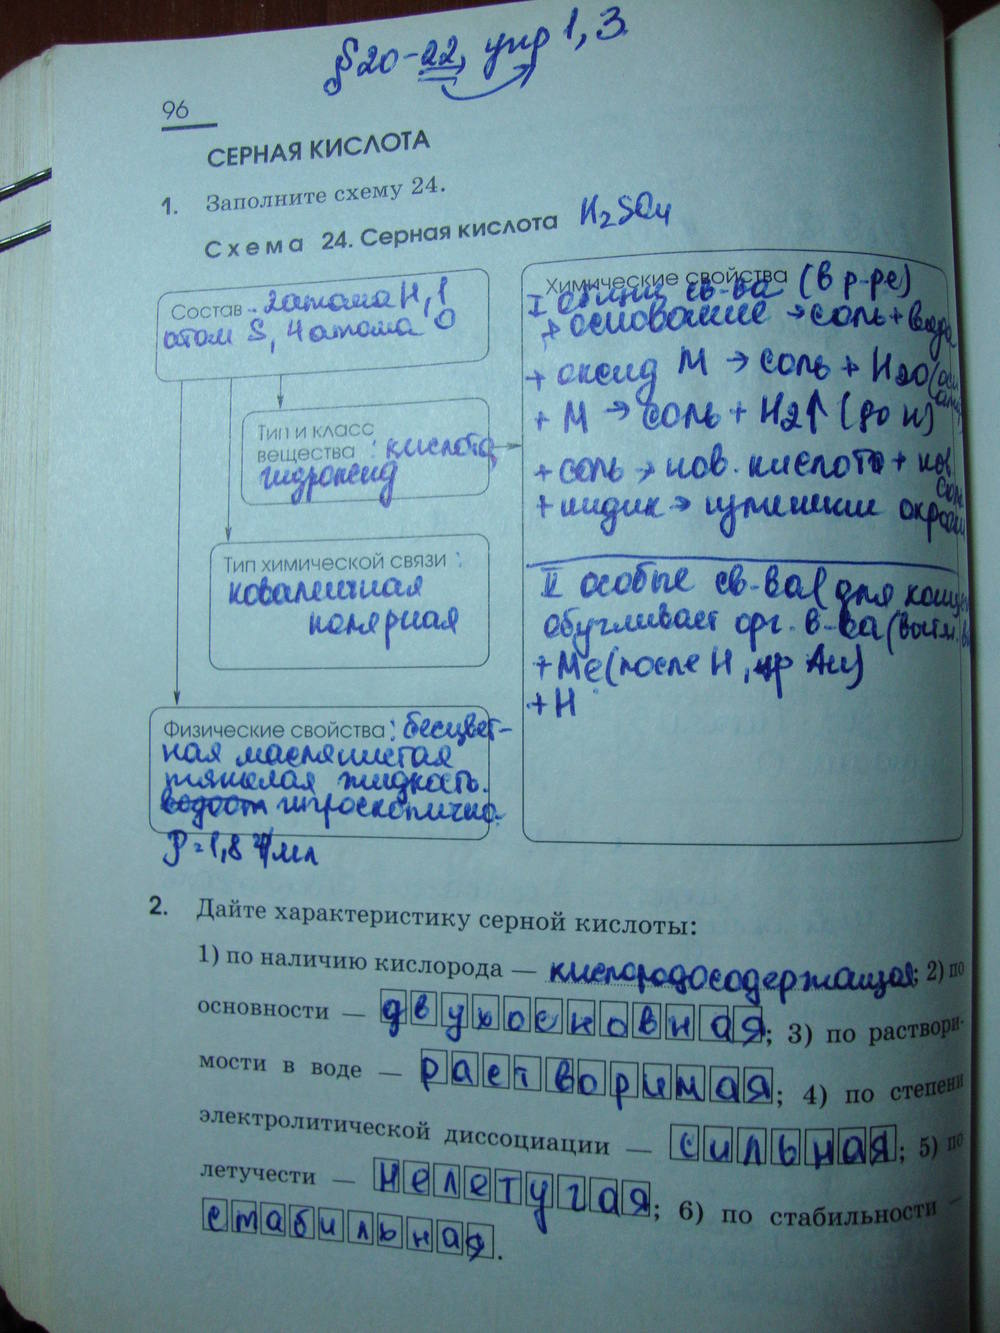 §20-22, упр 1, 3.
96
СЕРНАЯ КИСЛОТА
1. Заполните схему 24.
Схема 24. Серная кислота H2SO4
Состав - 2 атома H, 1
атом S, 4 атома O
Тип и класс
вещества : кислота
гидроксид
Тип химической связи :
ковалентная
полярная
Физические свойства : бесцвет-
ная маслянистая
тяжелая жидкость.
гигроскопична.
ρ = 1,8 г/мл
Химические свойства (в р-ре)
I общие св-ва
+ основание → соль + вода
+ оксид М → соль + H2O
+ М → соль + H2↑ (до H)
+ соль → нов. кислота + нов
соль
+ индик →
II особые св-ва (для конц
обугливает орг. в-ва
+ Me (после H, Au)
+ H
2. Дайте характеристику серной кислоты:
1) по наличию кислорода — кислородосодержащая; 2) по
основности — двухосновная; 3) по раствори-
мости в воде — растворимая; 4) по степени
электролитической диссоциации — сильная; 5) по
летучести — нелетучая; 6) по стабильности —
стабильная.